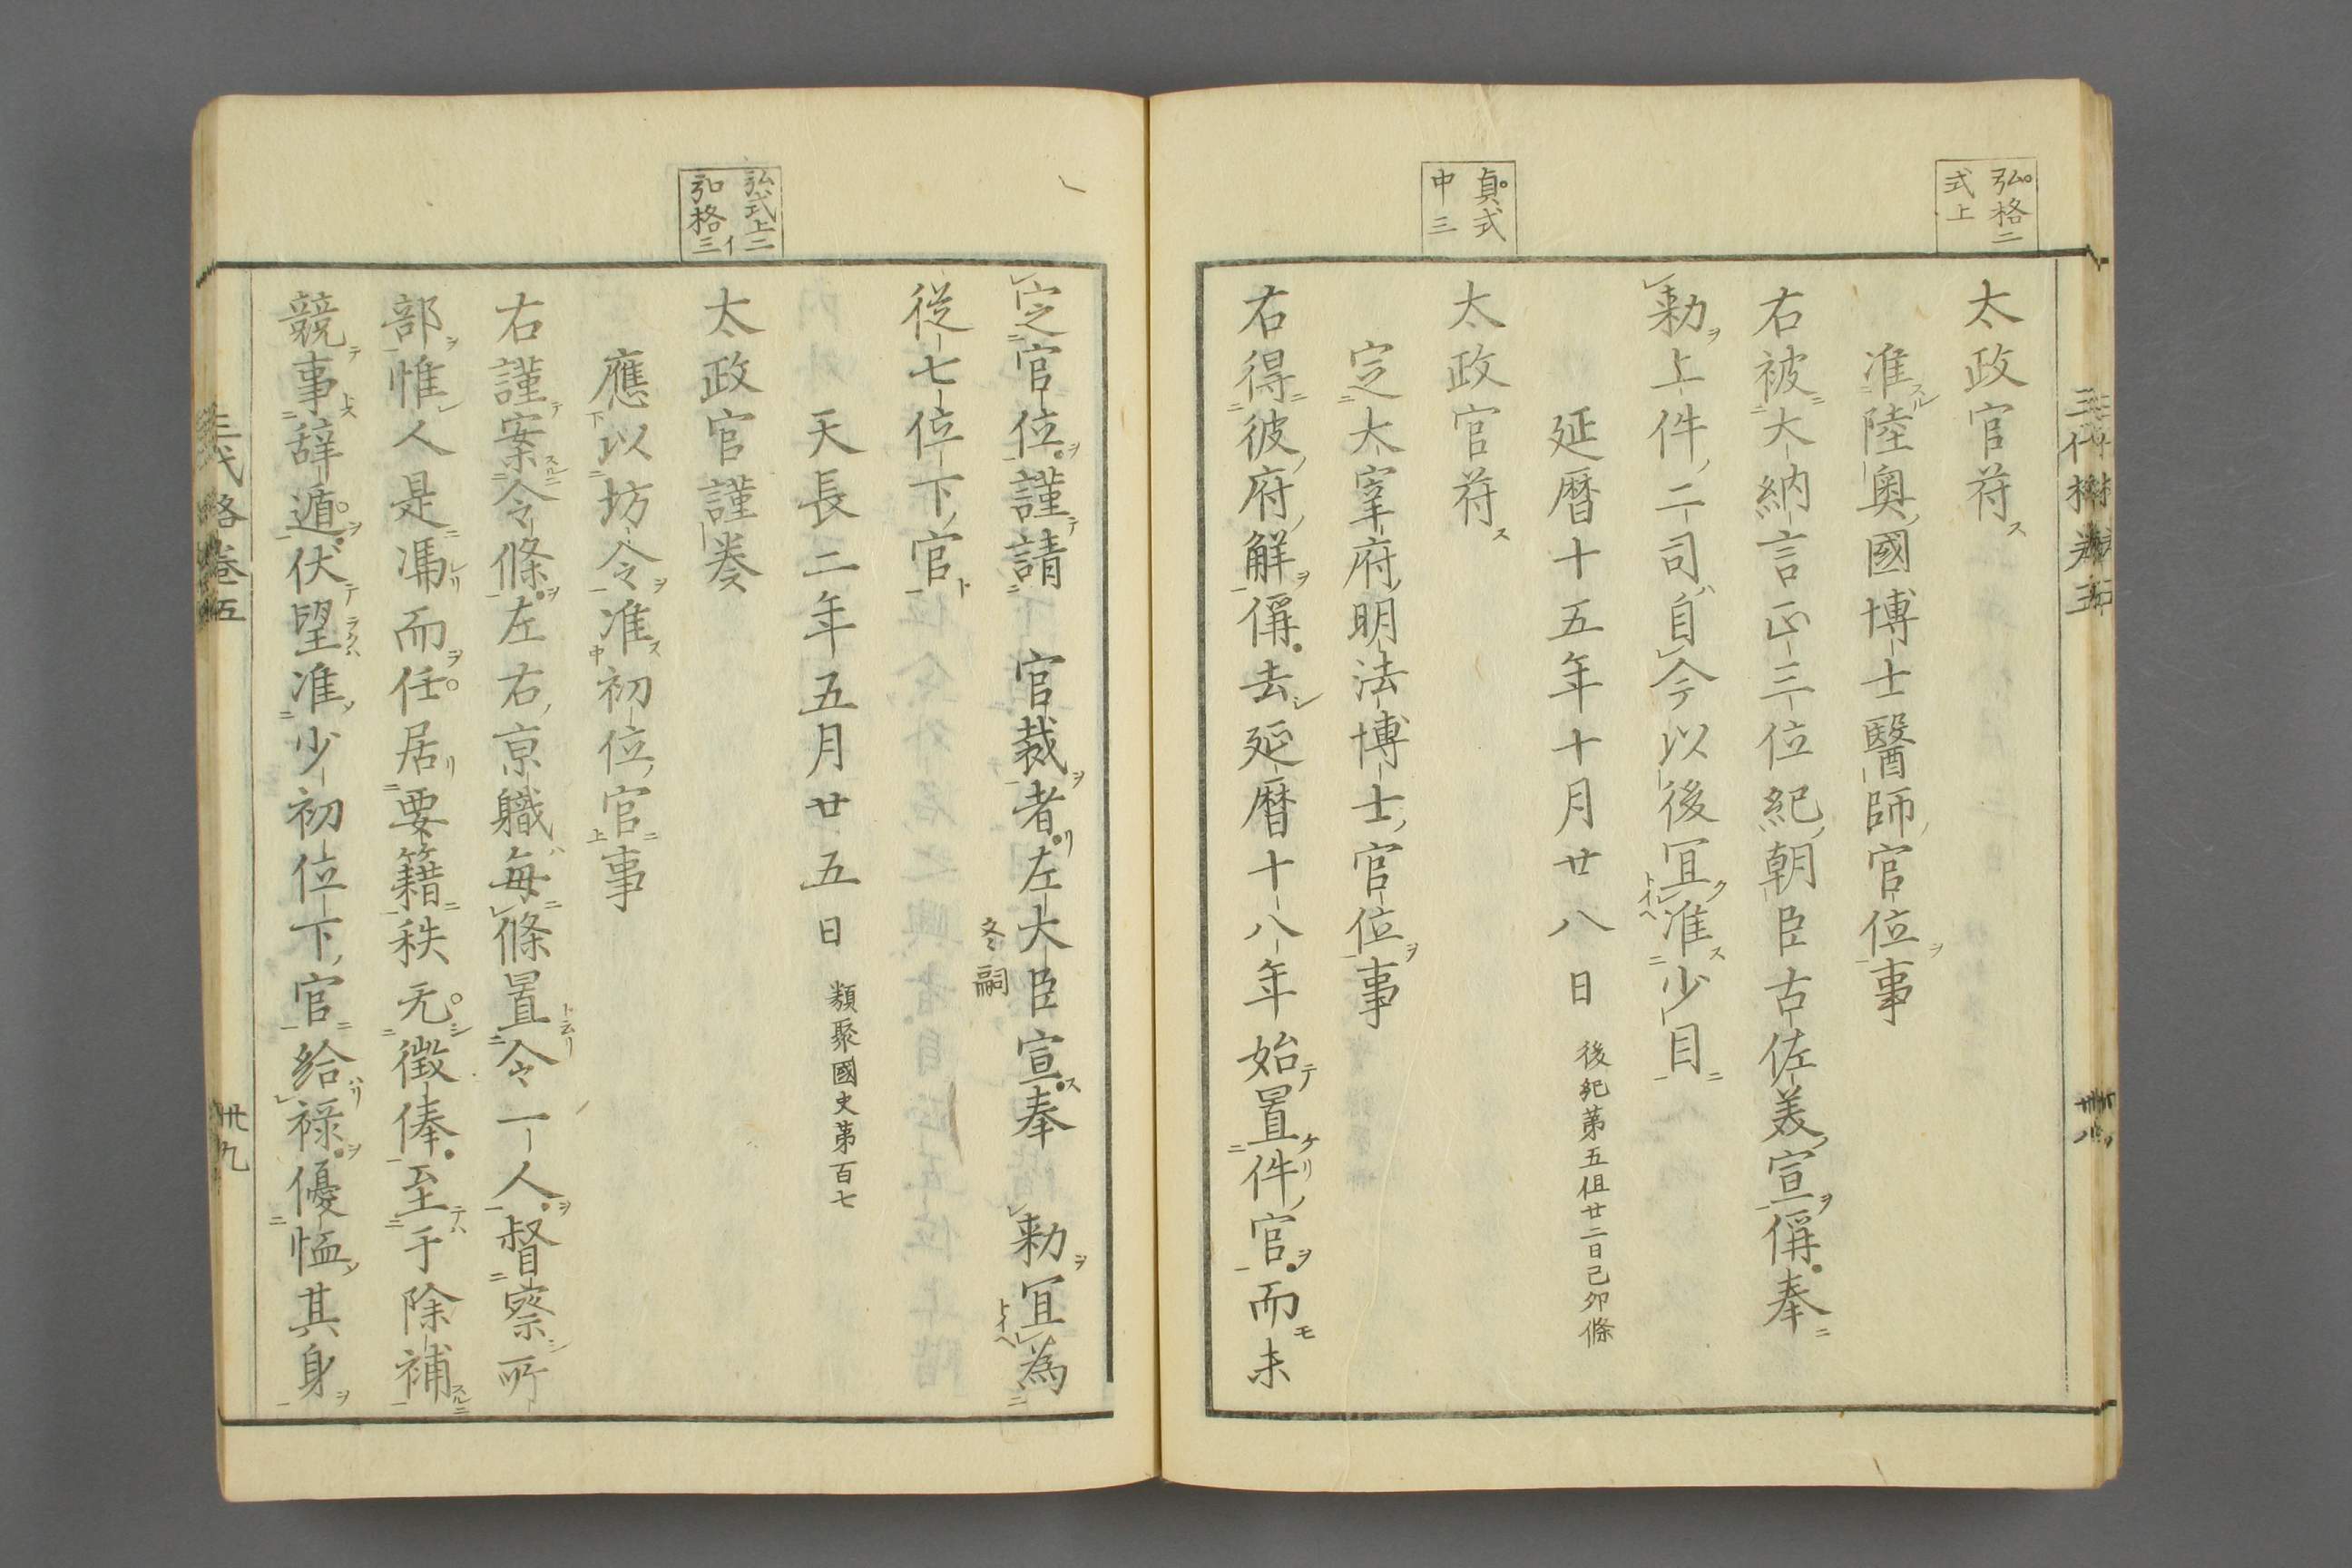 弘格二
式上
太政官符
准陸奥國博士醫師官位事
右被大納言正三位紀朝臣古佐美宣偁奉
勅上件二司自今以後冝准少目
延暦十五年十月廿八日 後紀第五但廿二日己卯條
貞式
中三
太政官符
定大宰府明法博士官位事
右得彼府解偁去延暦十八年始置件官而未
定官位謹請 官裁者左大臣宣奉 勅冝為
冬嗣
従七位下官
天長二年五月廿五日 類聚國史第百七
弘式上二
弘格三イ
太政官謹奏
應以坊令准初位官事
右謹案令條左右京職毎條置令一人督察所
部惟人是馮而任居要籍秩无徴俸至于除補
競事辞遁伏望准少初位下官給禄優恤其身
卅九